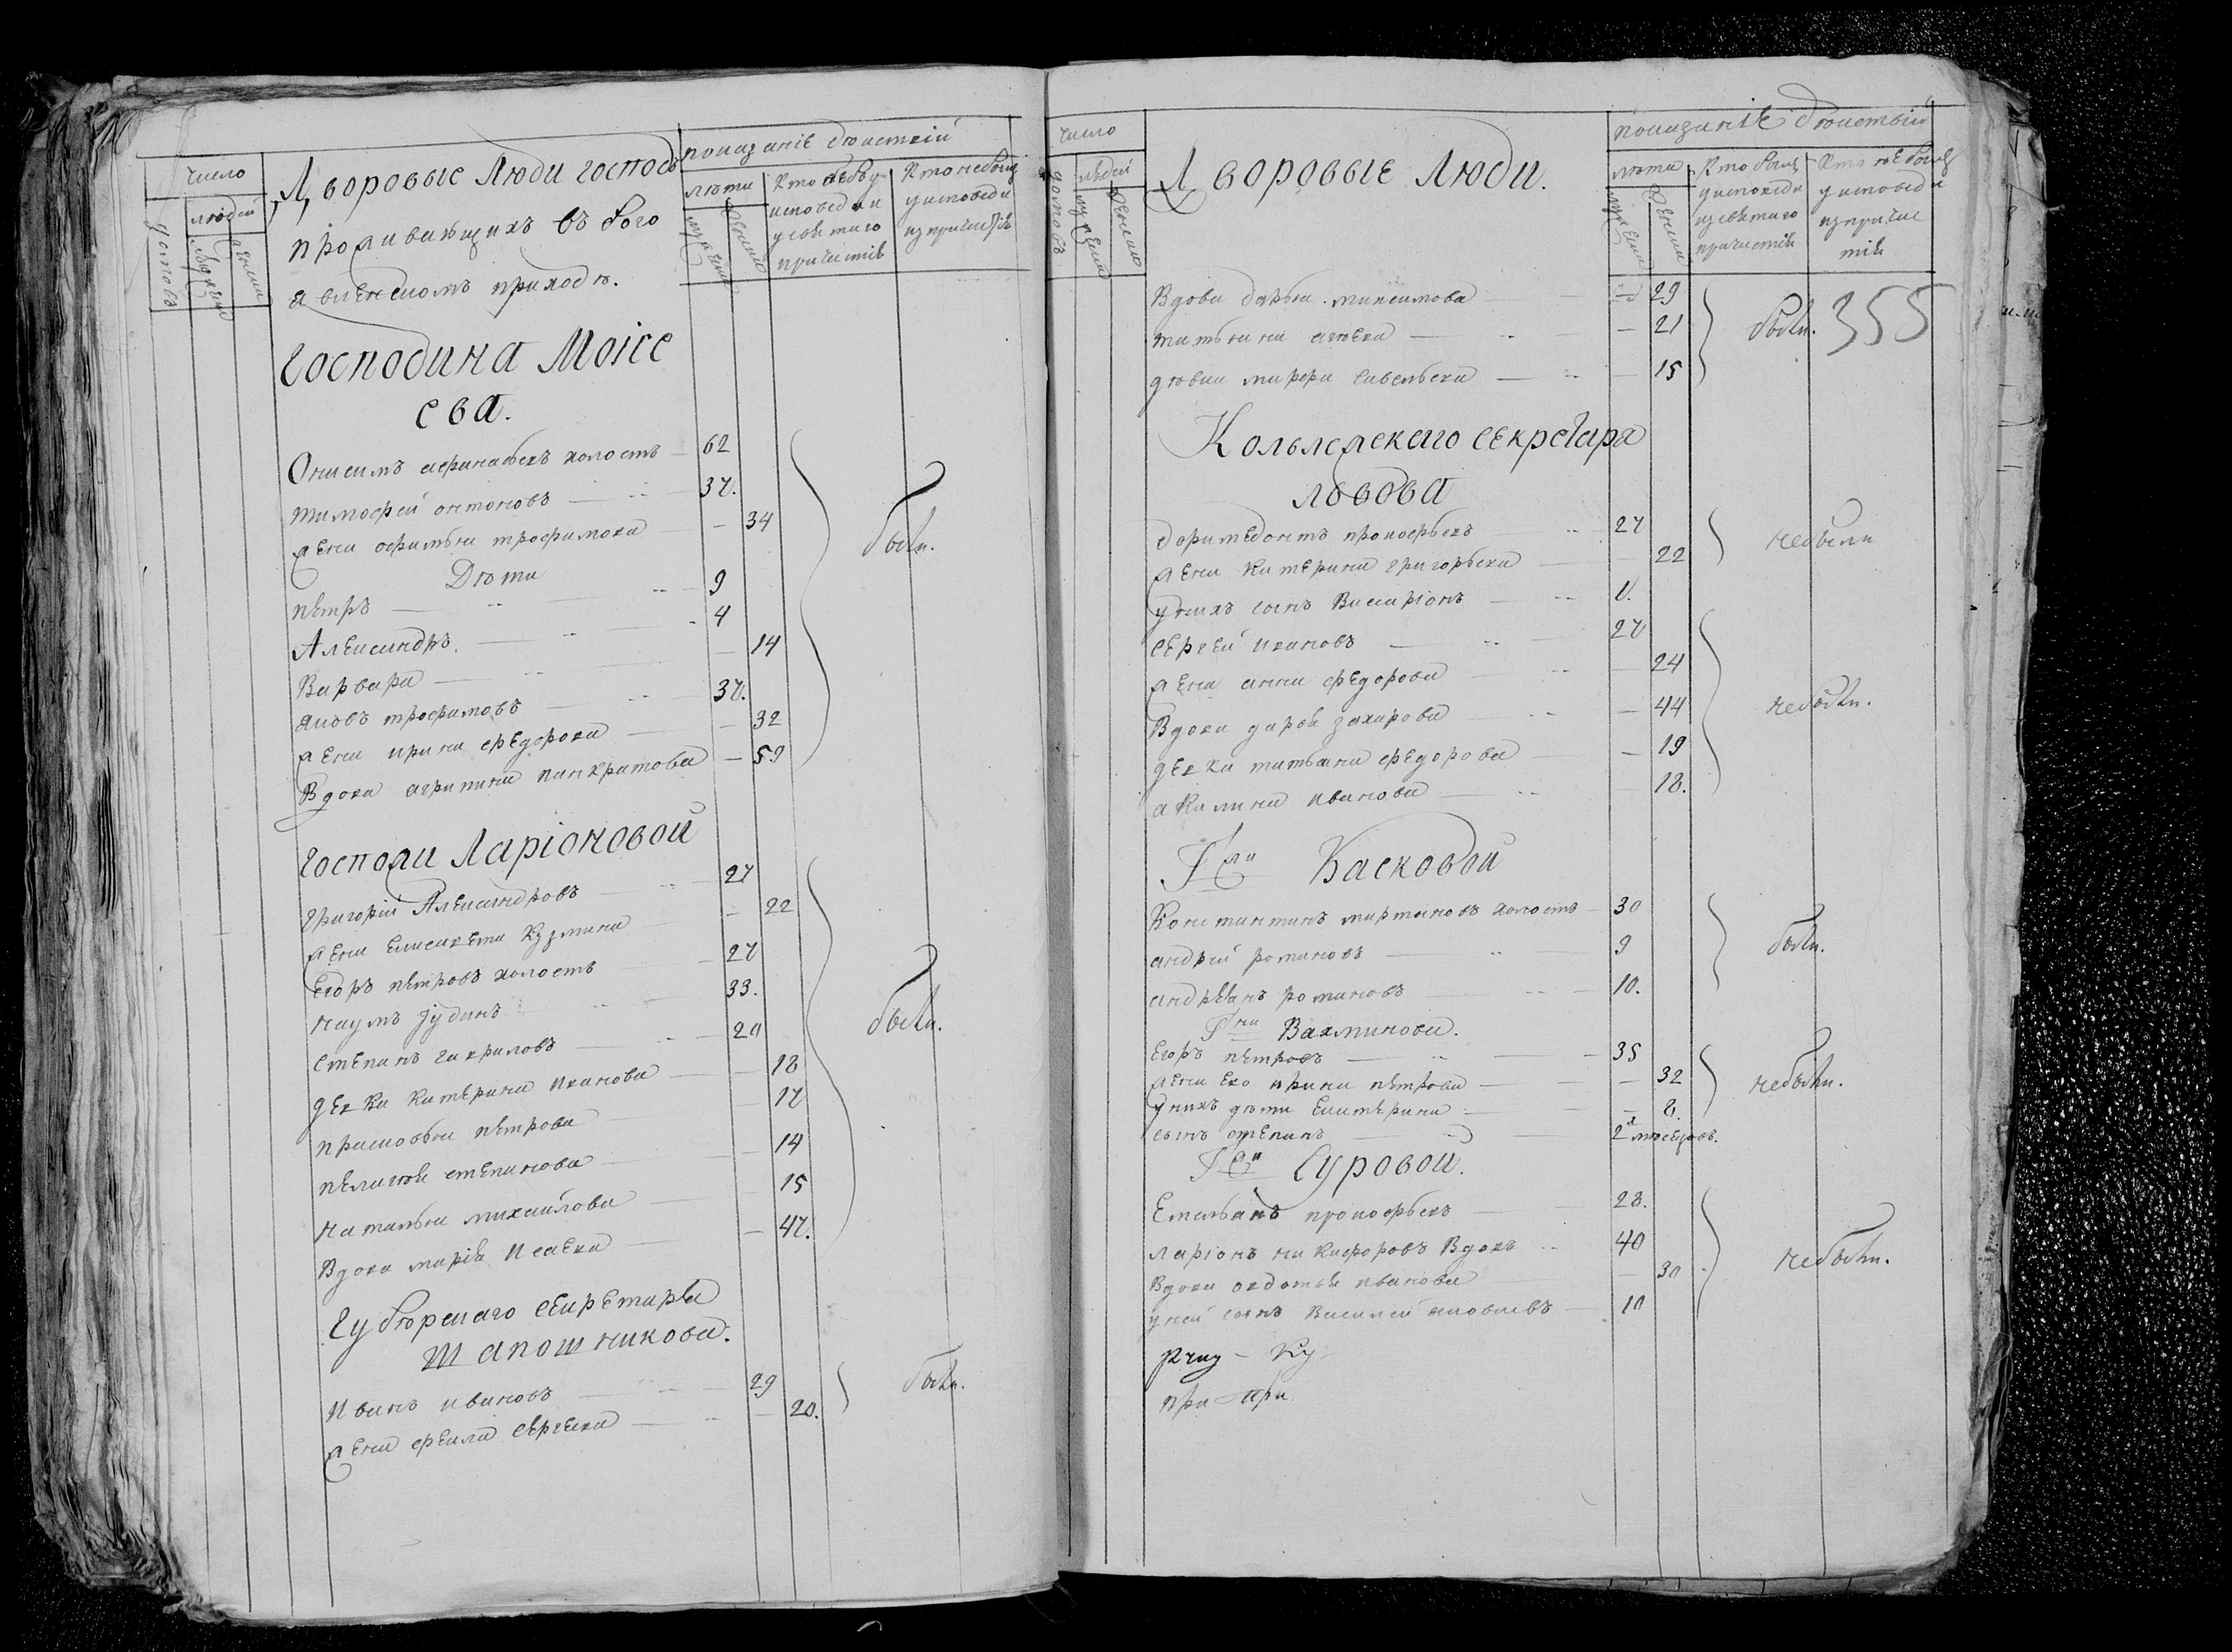 число
людей
домовъ
мужеска
женска
Дворовые люди господъ
проживающихъ въ бого
явленскомъ приходѣ.
показаніе дѣйствій
лѣты
мужеска
женска
Кто былъ у
исповеди и
у святаго
причастія
Кто не былъ
у исповеди
и у причастія
Господина Моисе
ева.
Онисимъ афанасьевъ холостъ — 62
тимофей онтоновъ — 37.
жена офимья трофимова — 34
Дѣти
петръ — 9
Александръ — 4
Варвара — 14
яковъ трофимовъ — 37.
жена ирина федорова — 32
Вдова агрипина панкратова — 59
были.
Госпожи Ларіоновой
григорій Александровъ — 27
жена Елисавета Кузмина — 22
Егоръ петровъ холостъ — 27
наумъ Іудинъ — 33.
степанъ гавриловъ — 20
девки катерина иванова — 18
прасковья петрова — 17
пелагѣя степанова — 14
наталья михайлова — 15
Вдова марія исаева — 47.
были.
Губернскаго секретаря
шапошникова.
иванъ ивановъ — 29
жена фекла сергѣева — 20.
были.
число
людей
домовъ
мужеска
женска
Дворовые Люди.
показаніе дѣйствій
лѣты
мужеска
женска
Кто былъ
у исповеди
и у святаго
причастія
Кто не былъ
у исповеди
и у причас
тія
355
Вдова дарья максимова — 29
татьяна агѣева — 21
девка марфа савельева — 15
были.
Кольлежскаго секретаря
Львова
доримедонтъ прокофьевъ — 27
жена Катерина григорьева — 22
не были
у нихъ сынъ Висаріонъ — 1/2.
сергѣй ивановъ — 27
жена анна федорова — 24
Вдова дарья захарова — 44
девки татьяна федорова — 19
акилина иванова — 18.
не были.
Гжи Басковой
Константинъ мартыновъ холостъ — 30
андрѣй романовъ — 9
андреянъ романовъ — 10.
были.
Гна Вахминова.
Егоръ петровъ — 35
жена его ирина петрова — 32
у нихъ дѣти Екатерина — 8.
сынъ степанъ — 2х месяцовъ.
не были.
Гжи Суровой.
Емельянъ прокофьевъ — 28.
ларіонъ никифоровъ Вдовъ — 40
Вдова овдотья иванова — 30
у ней сынъ Василей яковлевъ — 10
не были.